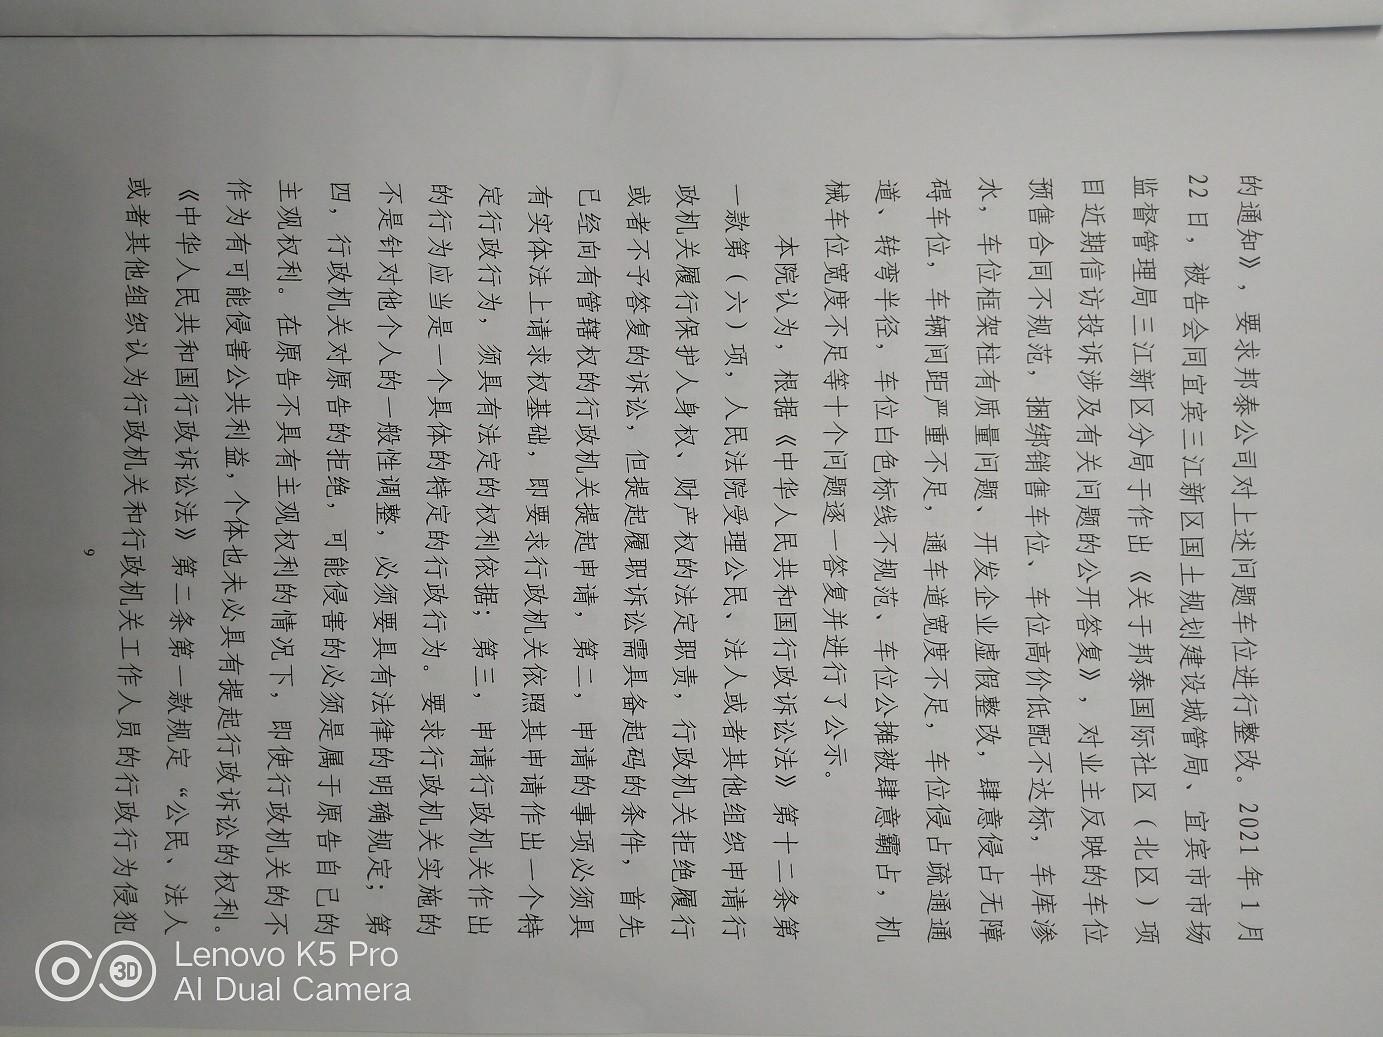 的通知》，要求邦泰公司对上述问题车位进行整改。2021 年 1 月
22 日，被告会同宜宾三江新区国土规划建设城管局、宜宾市市场
监督管理局三江新区分局于作出《关于邦泰国际社区（北区）项
目近期信访投诉涉及有关问题的公开答复》，对业主反映的车位
预售合同不规范，捆绑销售车位、车位高价低配不达标，车库渗
水，车位框架柱有质量问题、开发企业虚假整改，肆意侵占无障
碍车位，车辆间距严重不足，通车道宽度不足，车位侵占疏通通
道、转弯半径，车位白色标线不规范、车位公摊被肆意霸占，机
械车位宽度不足等十个问题逐一答复并进行了公示。
本院认为，根据《中华人民共和国行政诉讼法》第十二条第
一款第（六）项，人民法院受理公民、法人或者其他组织申请行
政机关履行保护人身权、财产权的法定职责，行政机关拒绝履行
或者不予答复的诉讼，但提起履职诉讼需具备起码的条件，首先
已经向有管辖权的行政机关提起申请，第二，申请的事项必须具
有实体法上请求权基础，即要求行政机关依照其申请作出一个特
定行政行为，须具有法定的权利依据；第三，申请行政机关作出
的行为应当是一个具体的特定的行政行为。要求行政机关实施的
不是针对他个人的一般性调整，必须要具有法律的明确规定；第
四，行政机关对原告的拒绝，可能侵害的必须是属于原告自己的
主观权利。在原告不具有主观权利的情况下，即使行政机关的不
作为有可能侵害公共利益，个体也未必具有提起行政诉讼的权利。
《中华人民共和国行政诉讼法》第二条第一款规定“公民、法人
或者其他组织认为行政机关和行政机关工作人员的行政行为侵犯
9
Lenovo K5 Pro
AI Dual Camera
3D